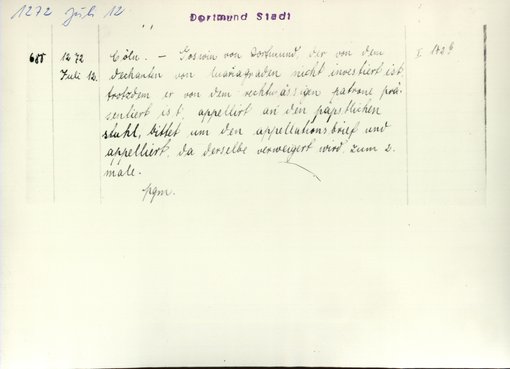 1272 Juli 12
Dortmund Stadt
688 1272 Cöln. — Goswin von Dortmund, der von dem
Juli 12. dechanten von Mariagraden nicht investiert ist,
trotzdem er von dem rechtmässigen patrone prä-
sentiert ist, appelliert an den päpstlichen
stuhl, bittet um den appellationsbrief und
appelliert, da derselbe verweigert wird, zum 2.
male.
pgm.